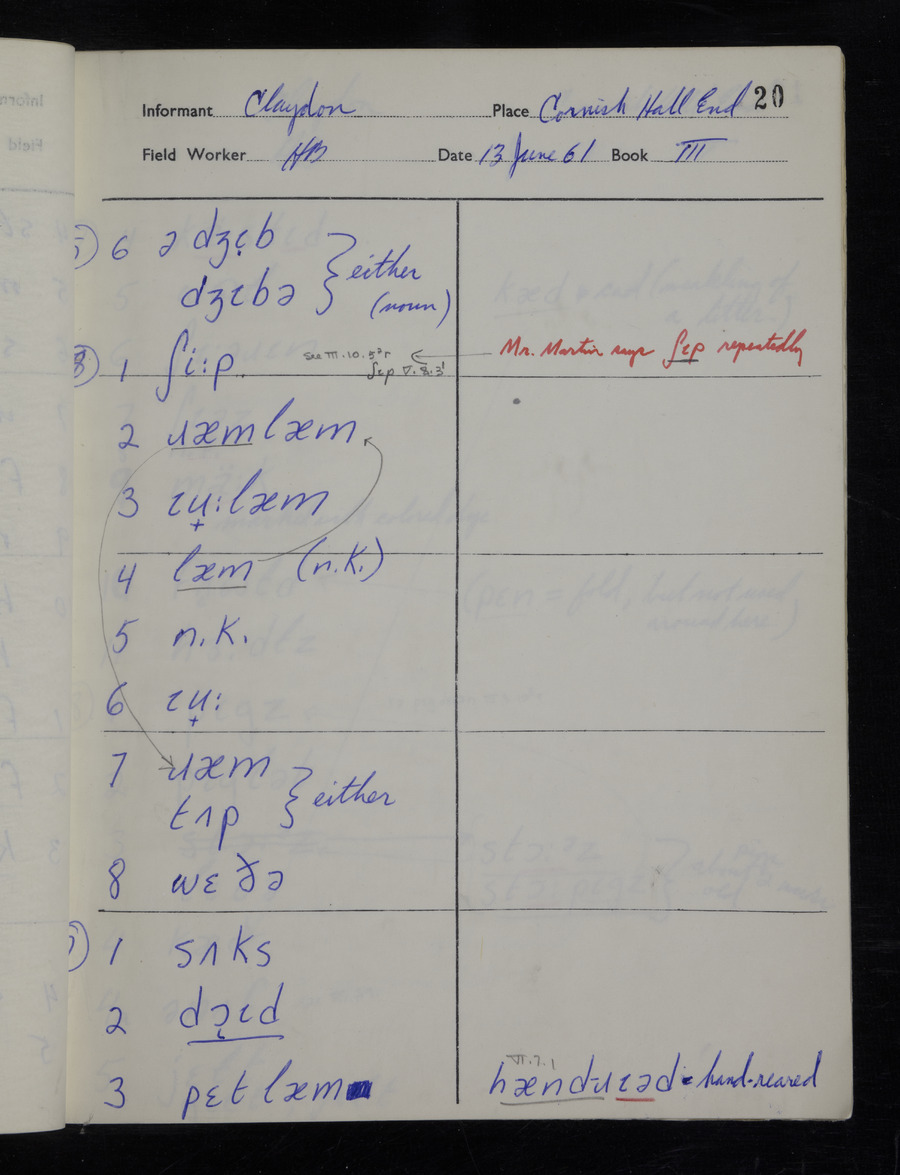 20
Informant Claydon Place Cornish Hall End
Field Worker HB Date 13 June 61 Book III
6 ə dʒɪ̞b
dʒɪbə } either (noun)
1 ʃi:p see III.10.5²r Mr. Martin says ʃɪp repeatedly
ʃɪp V.8.3¹
2 ɹæmlæm
3 ɪʉ̟:læm
4 læm (n.k.)
5 n.k.
6 ɪʉ̟:
7 ɹæm
tʌp } either
8 wɛðə
1 sʌks
2 dɔ̨ɪd
3 pɛt læm VI.7.1 hænd-ɹɪəd = hand-reared